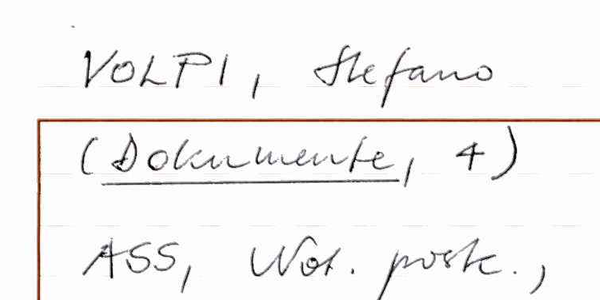 VOLPI, Stefano
(Dokumente, 4)
ASS, Not. postc.,